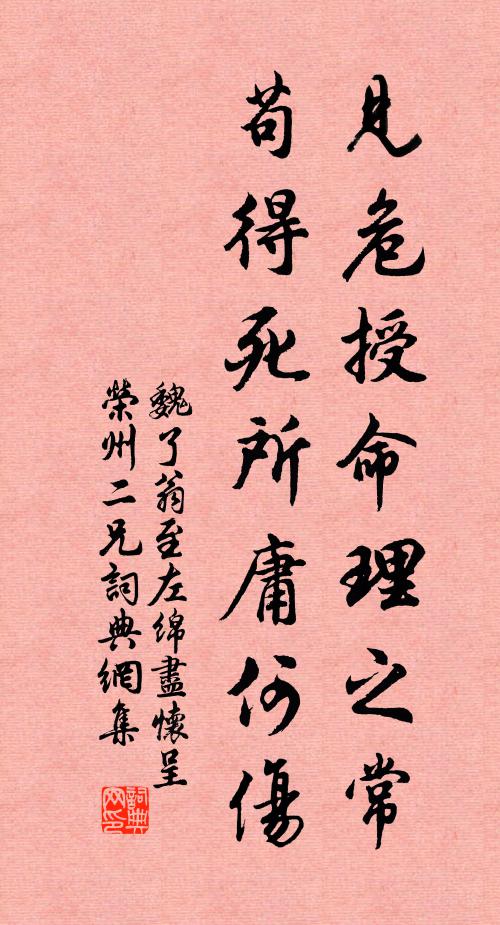 見危授命理之常
苟得死所庸何傷
魏了翁至左綿盡懷呈
榮州二兄詞典網集
詞典
网印